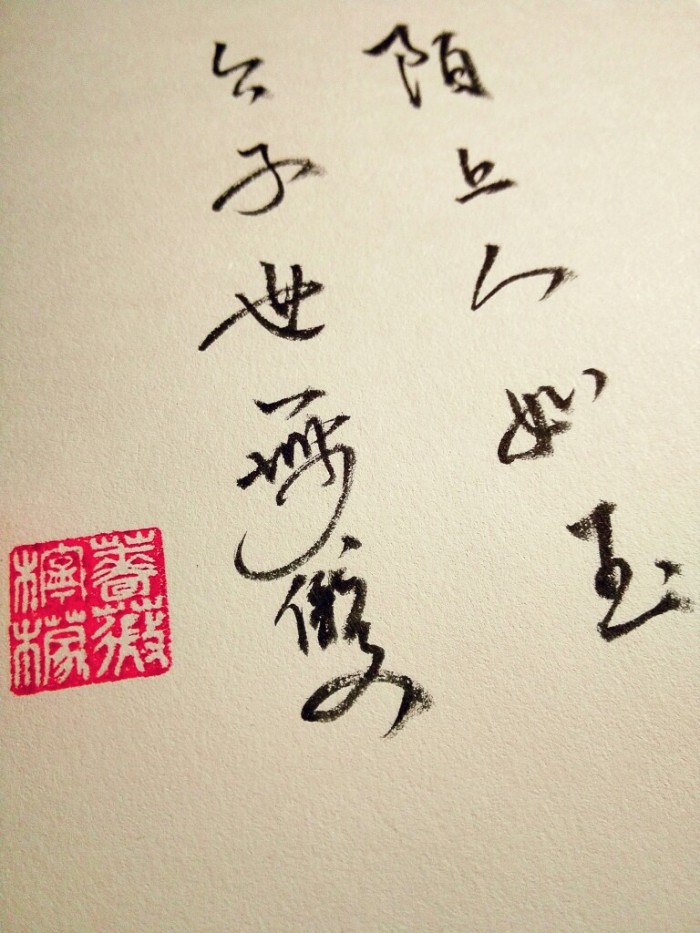 陌上人如玉
公子世無雙
薔薇
檸檬